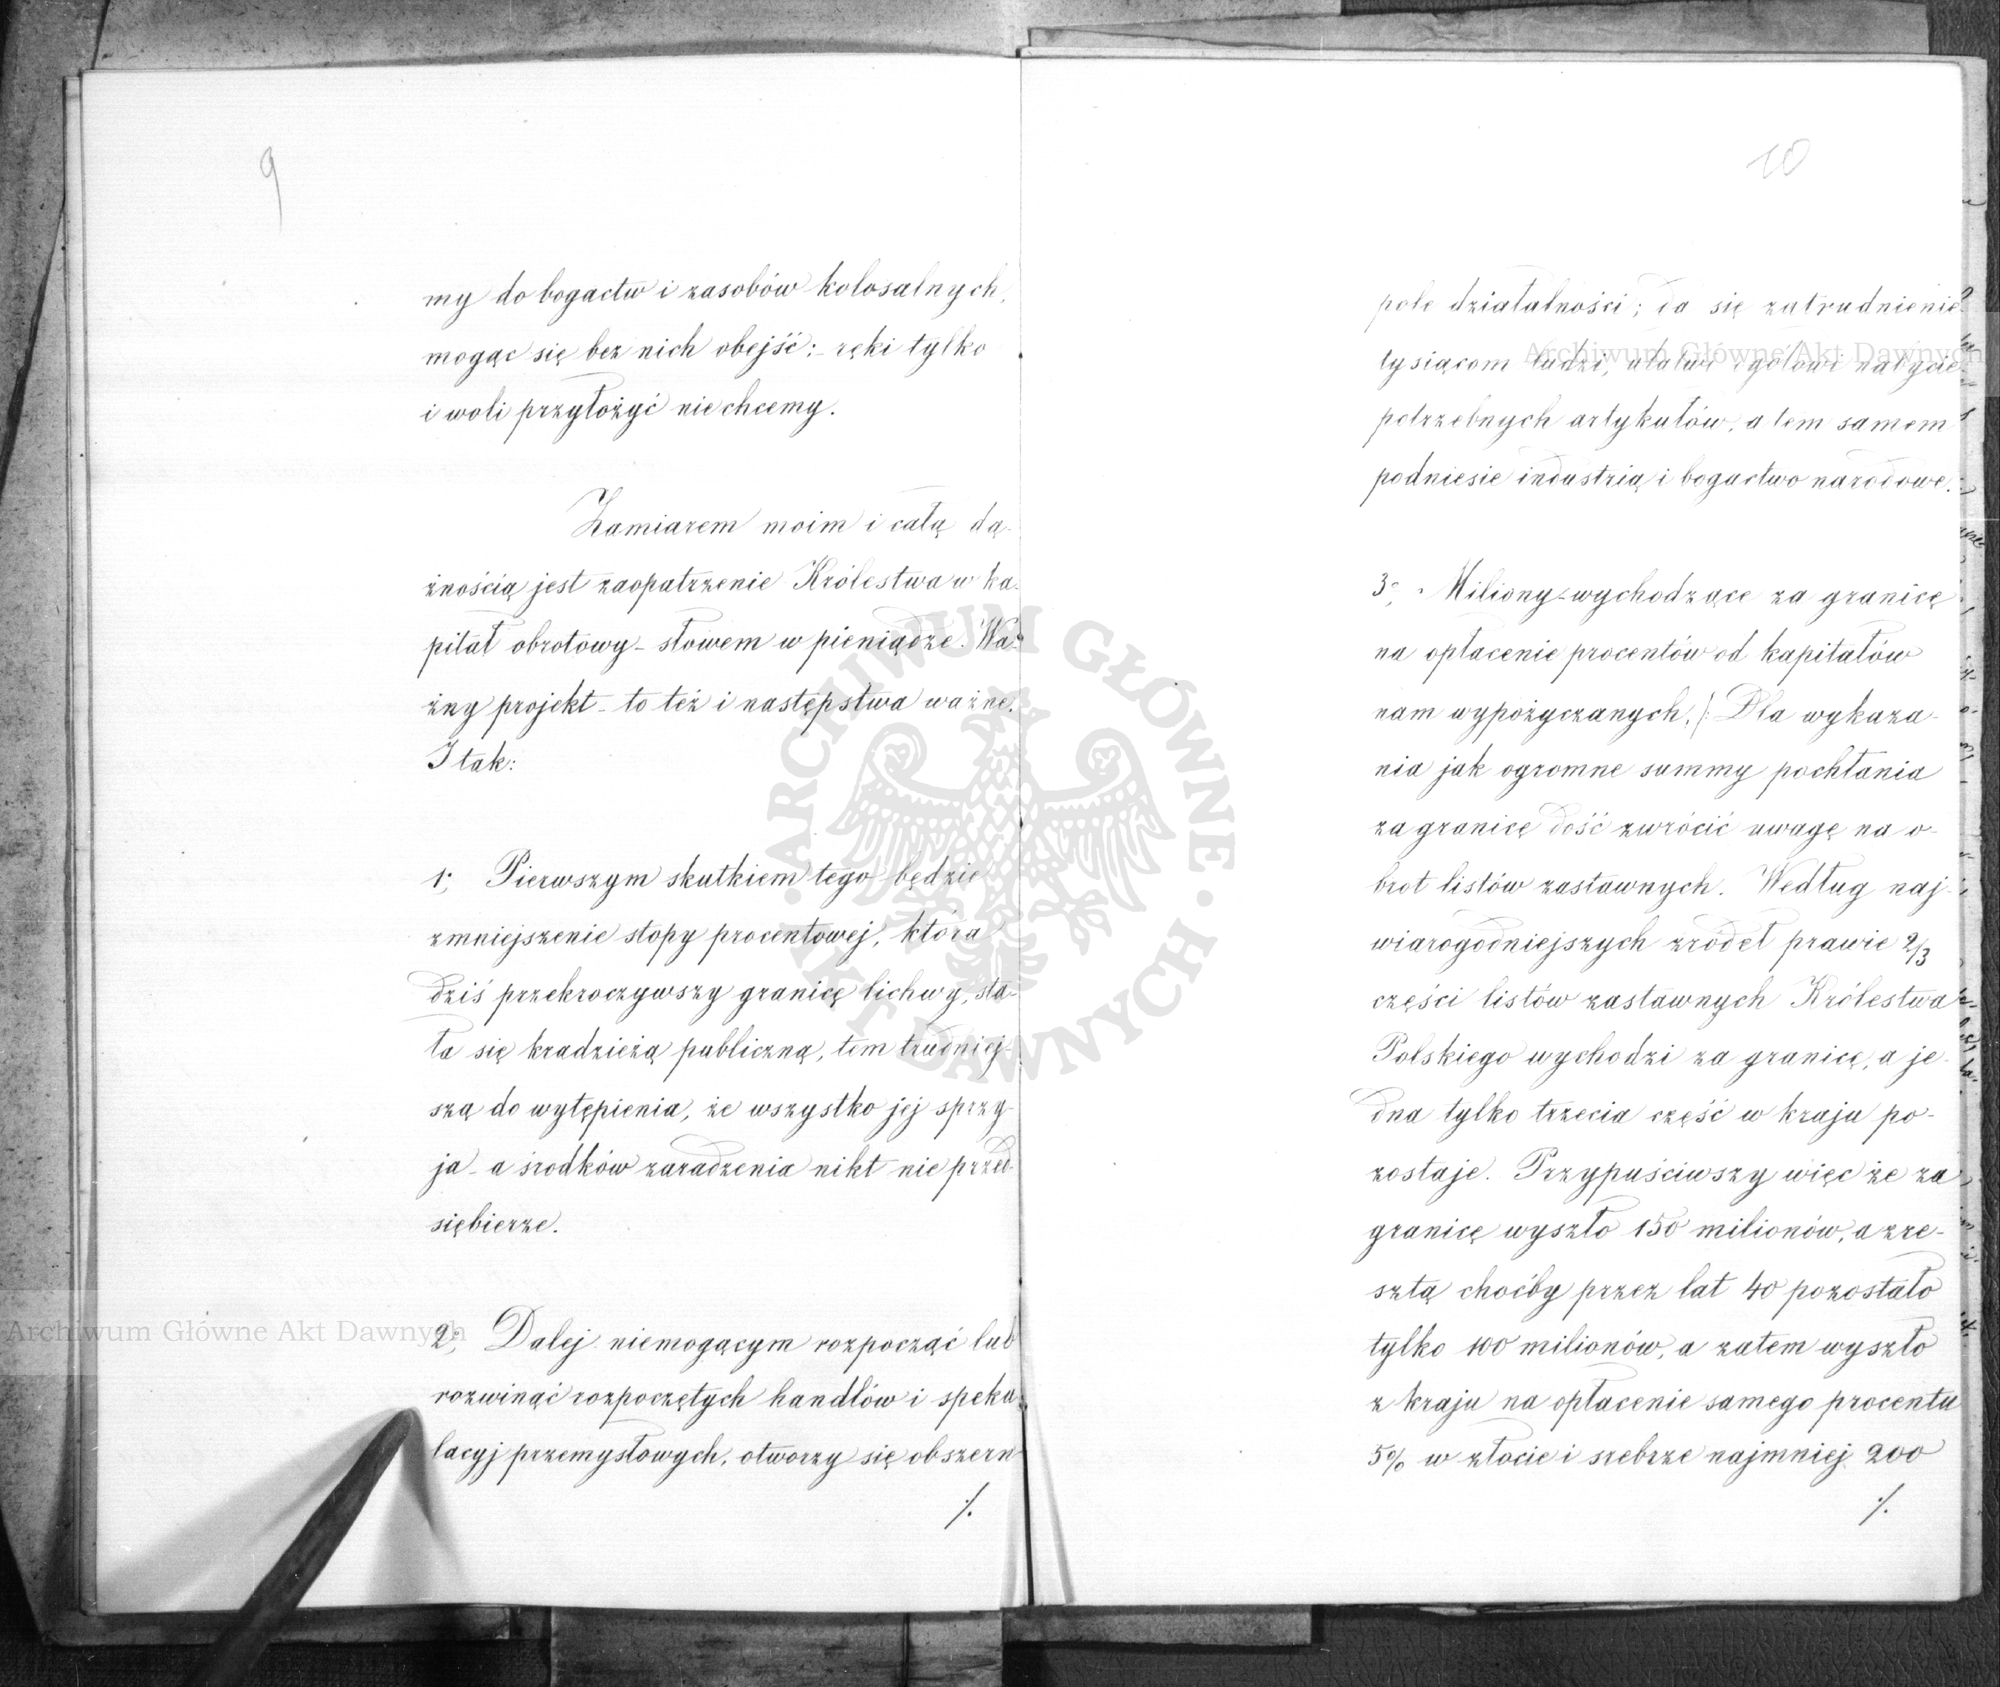 9
my do bogactw i zasobów kolosalnych,
mogąc się bez nich obejść: ręki tylko
i woli przyłożyć nie chcemy.
Zamiarem moim i całą dą-
żnością jest zaopatrzenie Królestwa w ka-
pitał obrotowy – słowem w pieniądze. Wa-
żny projekt – to też i następstwa ważne.
I tak:
1; Pierwszym skutkiem tego będzie
zmniejszenie stopy procentowej, która
dziś przekroczywszy granicę lichwy, sta-
ła się kradzieżą publiczną, tem trudniej-
szą do wytępienia, że wszystko jej sprzy-
ja – a środków zaradzenia nikt nie przed-
siębierze.
2; Dalej niemogącym rozpocząć lub
rozwinąć rozpoczętych handlów i speku-
lacyj przemysłowych, otworzy się obszern
./.
10
pole działalności; da się zatrudnienie
tysiącom ludzi, ułatwi ogółowi nabycie
potrzebnych artykułów, a tem samem
podniesie industrią i bogactwo narodowe.
3; Miliony wychodzące za granicę
na opłacenie procentów od kapitałów
nam wypożyczanych. /: Dla wykaza-
nia jak ogromne summy pochłania
zagranicę dość zwrócić uwagę na o-
brot listów zastawnych. Według naj-
wiarogodniejszych zródeł prawie 2/3
części listów zastawnych Królestwa
Polskiego wychodzi za granicę, a je-
dna tylko trzecia część w kraju po-
zostaje. Przypuściwszy więc że za
granicę wyszło 150 milionów, a zre-
sztą choćby przez lat 40 pozostało
tylko 100 milionów, a zatem wyszło
z kraju na opłacenie samego procentu
5% w złocie i srebrze najmniej 200
./.
Archiwum Główne Akt Dawnych
Archiwum Główne Akt Dawnych
· ARCHIWUM GŁÓWNE · AKT DAWNYCH